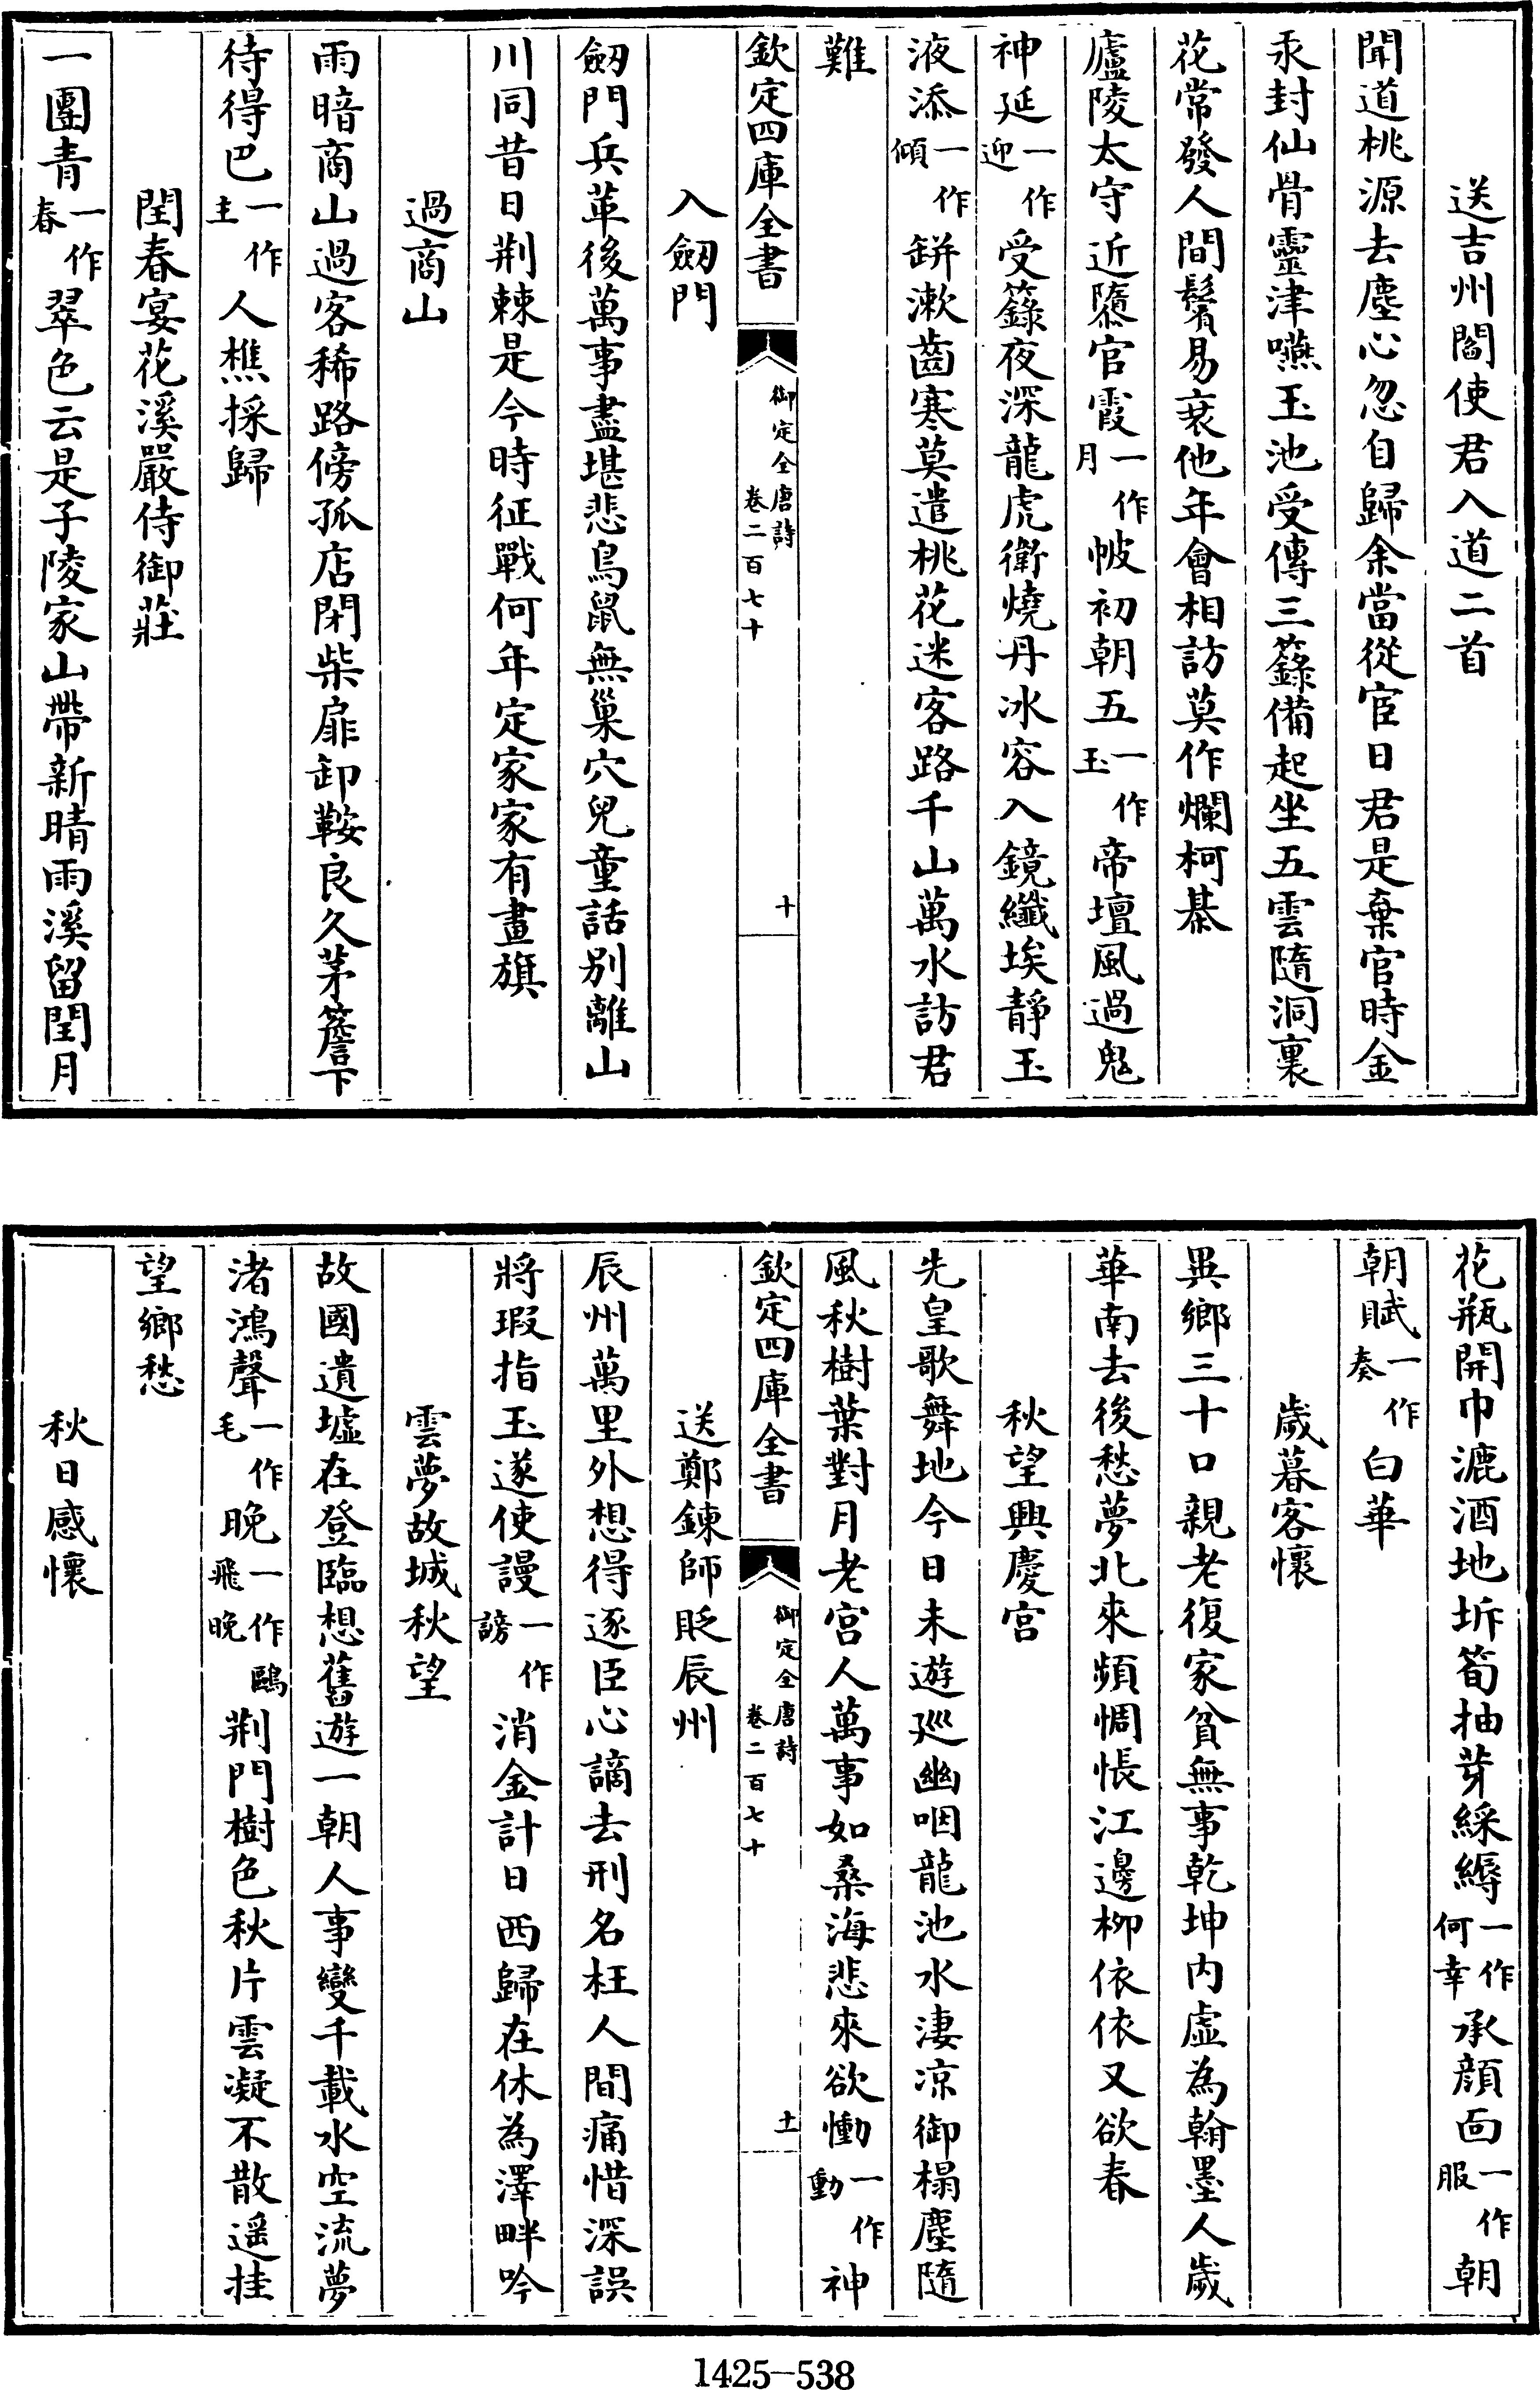 送吉州閻使君入道二首
聞道桃源去塵心忽自歸余當從宦日君是棄官時金
汞封仙骨靈津嚥玉池受傳三籙備起坐五雲隨洞裏
花常發人間鬢易衰他年會相訪莫作爛柯棊
廬陵太守近隳官霞一作月帔初朝五一作玉帝壇風過鬼
神延一作迎受籙夜深龍虎衛燒丹冰容入鏡纖埃靜玉
液添一作傾缾漱齒寒莫遣桃花迷客路千山萬水訪君
難
欽定四庫全書
御定全唐詩
卷二百七十
十
入劒門
劒門兵革後萬事盡堪悲鳥鼠無巢穴兒童話別離山
川同昔日荆棘是今時征戰何年定家家有畫旗
過商山
雨暗商山過客稀路傍孤店閉柴扉卸鞍良久茅簷下
待得巴一作主人樵採歸
閏春宴花溪嚴侍御莊
一團青一作春翠色云是子陵家山帶新晴雨溪留閏月
花瓶開巾漉酒地坼筍抽芽綵縟一作何幸承顔面一作服朝
朝賦一作奏白華
歲暮客懷
異鄉三十口親老復家貧無事乾坤内虛為翰墨人歲
華南去後愁夢北來頻惆悵江邊柳依依又欲春
秋望興慶宫
先皇歌舞地今日未遊巡幽咽龍池水淒凉御榻塵隨
風秋樹葉對月老宫人萬事如桑海悲來欲慟一作動神
欽定四庫全書
御定全唐詩
卷二百七十
十一
送鄭鍊師貶辰州
辰州萬里外想得逐臣心謫去刑名枉人間痛惜深誤
將瑕指玉遂使謾一作謗消金計日西歸在休為澤畔吟
雲夢故城秋望
故國遺墟在登臨想舊遊一朝人事變千載水空流夢
渚鴻聲一作毛晚一作鷗飛晚荆門樹色秋片雲凝不散遥挂
望鄉愁
秋日感懷
1425-538